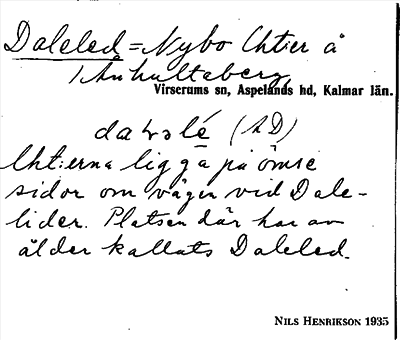 Daleled = Nybo Lht:er å
1 Anhultaberg
Virserums sn, Aspelands hd, Kalmar län.
(AD)
Lht:erna ligga på ömse
sidor om vägen vid Dale-
lider. Platsen där har av
ålder kallats Daleled.
NILS HENRIKSON 1935